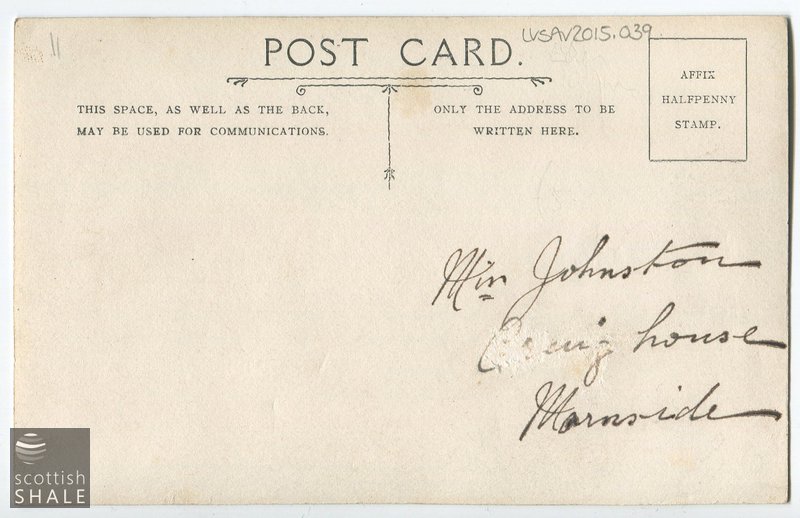 11
LVSAV2015.039
POST CARD.
THIS SPACE, AS WELL AS THE BACK,
MAY BE USED FOR COMMUNICATIONS.
ONLY THE ADDRESS TO BE
WRITTEN HERE.
AFFIX
HALFPENNY
STAMP.
Miss Johnston
Craig house
Mornside
scottish
SHALE